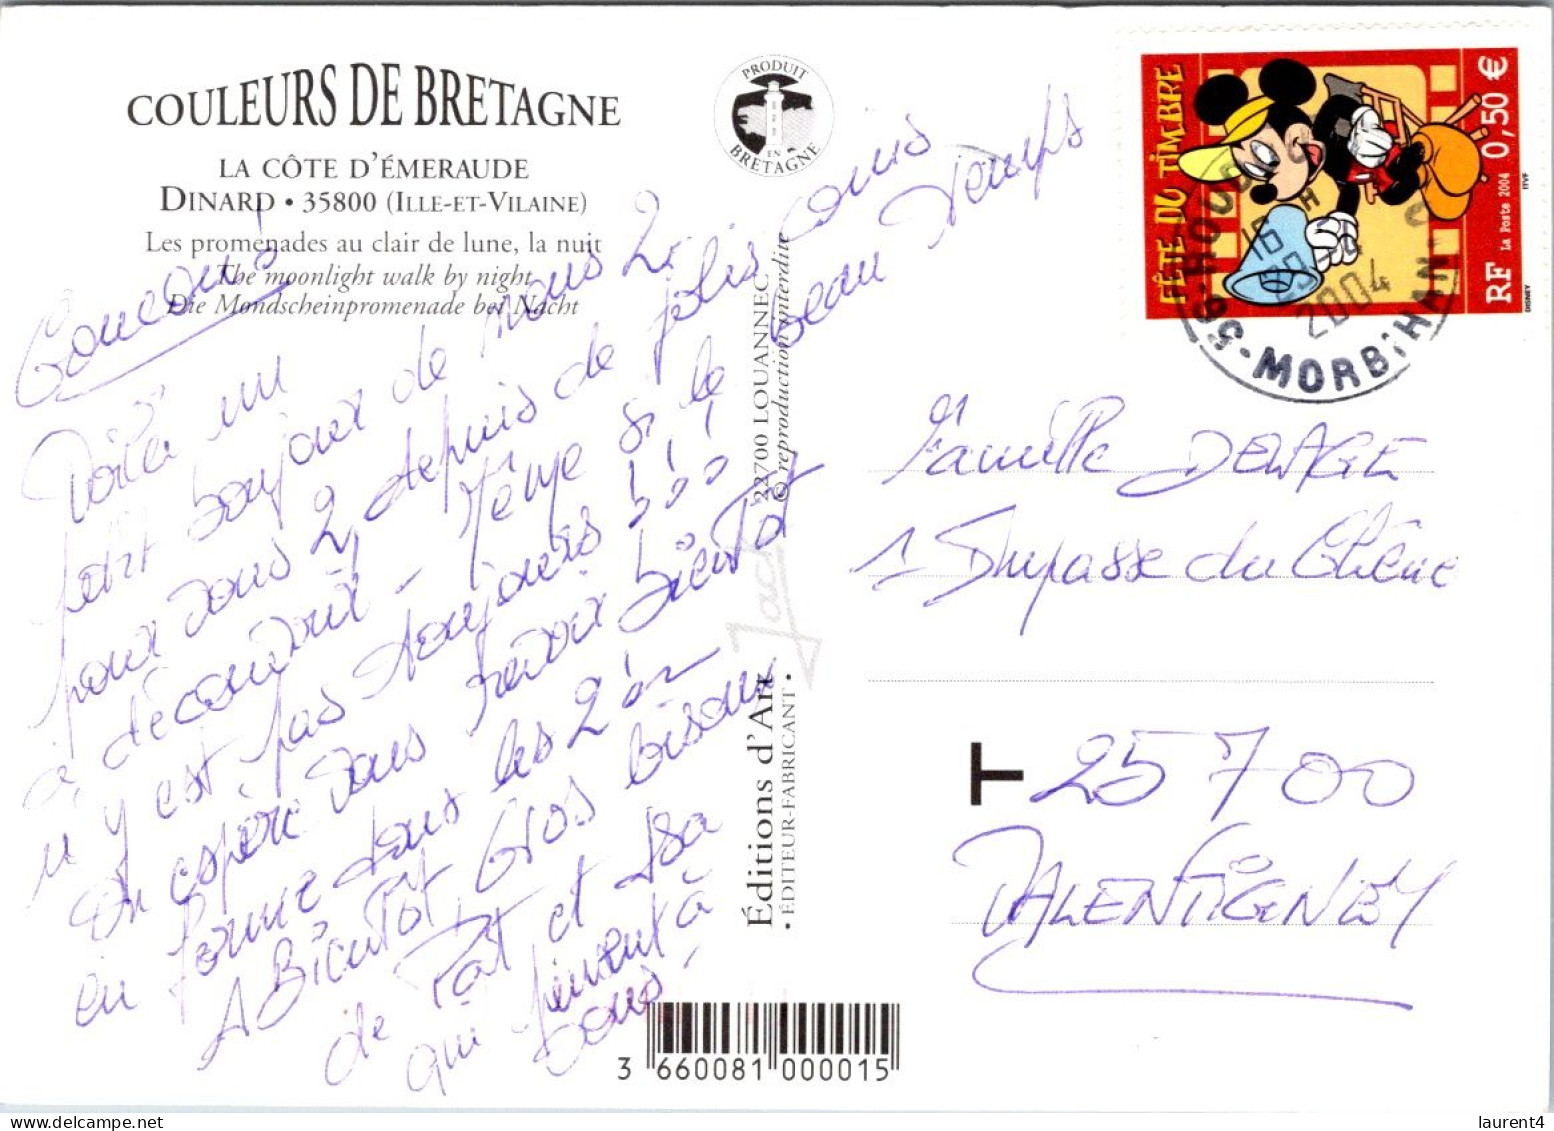 COULEURS DE BRETAGNE
LA CÔTE D'ÉMERAUDE
DINARD • 35800 (ILLE-ET-VILAINE)
Les promenades au clair de lune, la nuit
The moonlight walk by night
Die Mondscheinpromenade bei Nacht
PRODUIT
EN
BRETAGNE
Coucou !
Voilà un
petit bonjour de nous 2
pour vous 2 depuis de jolis coins
à découvrir - Même si le beau temps
n'y est pas toujours !!!
On espère vous revoir bientôt
en forme tous les 2
A Bientôt Gros bisous
de Pat et Isa
qui pensent à
vous -
22700 LOUANNEC
© reproduction interdite
Jack
Éditions d'Art
• ÉDITEUR-FABRICANT •
3 660081 000015
FÊTE DU TIMBRE
0,50 €
RF La Poste 2004
ITVF
DISNEY
2004
56 - MORBIHAN
Famille DELAGE
1 Impasse du Chêne
T 25 700
VALENTIGNEY
laurent4